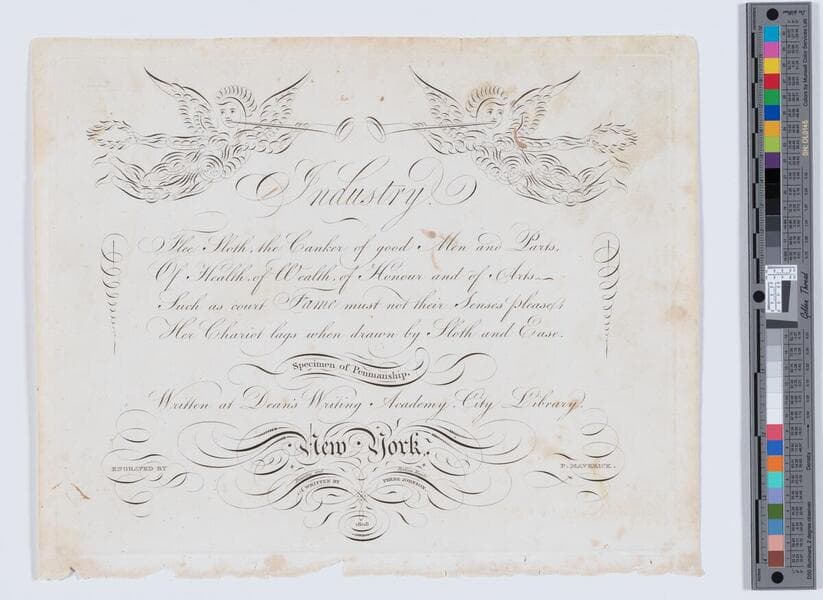 Industry.
Flee Sloth, the Canker of good Men and Parts,
Of Health, of Wealth, of Honour and of Arts
Such as court Fame must not their Senses please;
Her Chariot lags when drawn by Sloth and Ease.
Specimen of Penmanship.
Written at Dean's Writing Academy City Library.
New York.
ENGRAVED BY P. MAVERICK.
WRITTEN BY
1808
Golden Thread